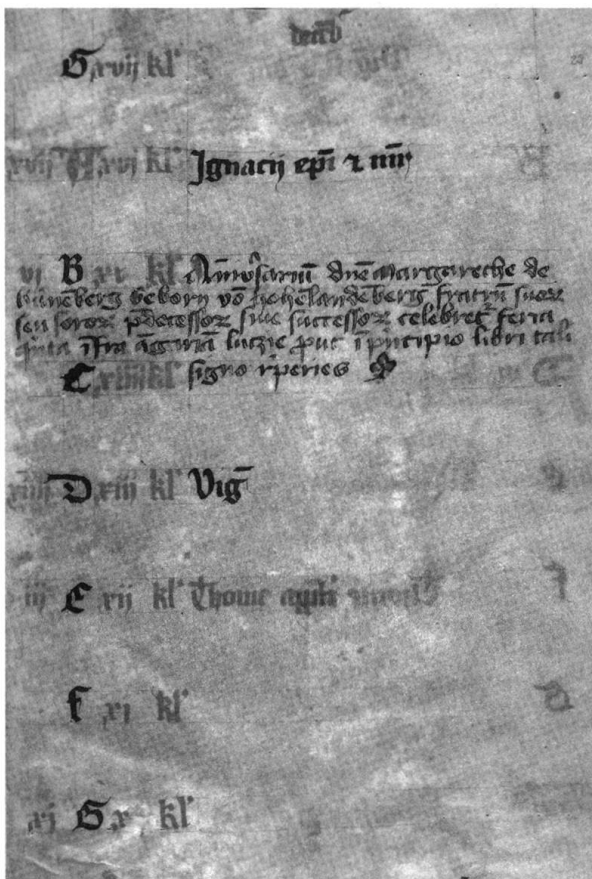 decēb
G xvij kl'
xvij A xvj kl' Ignacij ep̄i ⁊ m̄r
vi B xv kl' Anniv̄sariū dn̄e Margarethe de
hünēberg geborn vō hohelandēberg fratrū suoꝝ
seu soroꝝ p̄decessoꝝ siue successoꝝ celebret̄ feria
q̄nta īfra āgariā lucie ꝓut ī pͥncipio libri tali
C xiiij kl' signo rep̄eries
xiiij D xiij kl' Vig̅
iij E xij kl' Thome apl̄i
f xj kl'
xj G x kl'